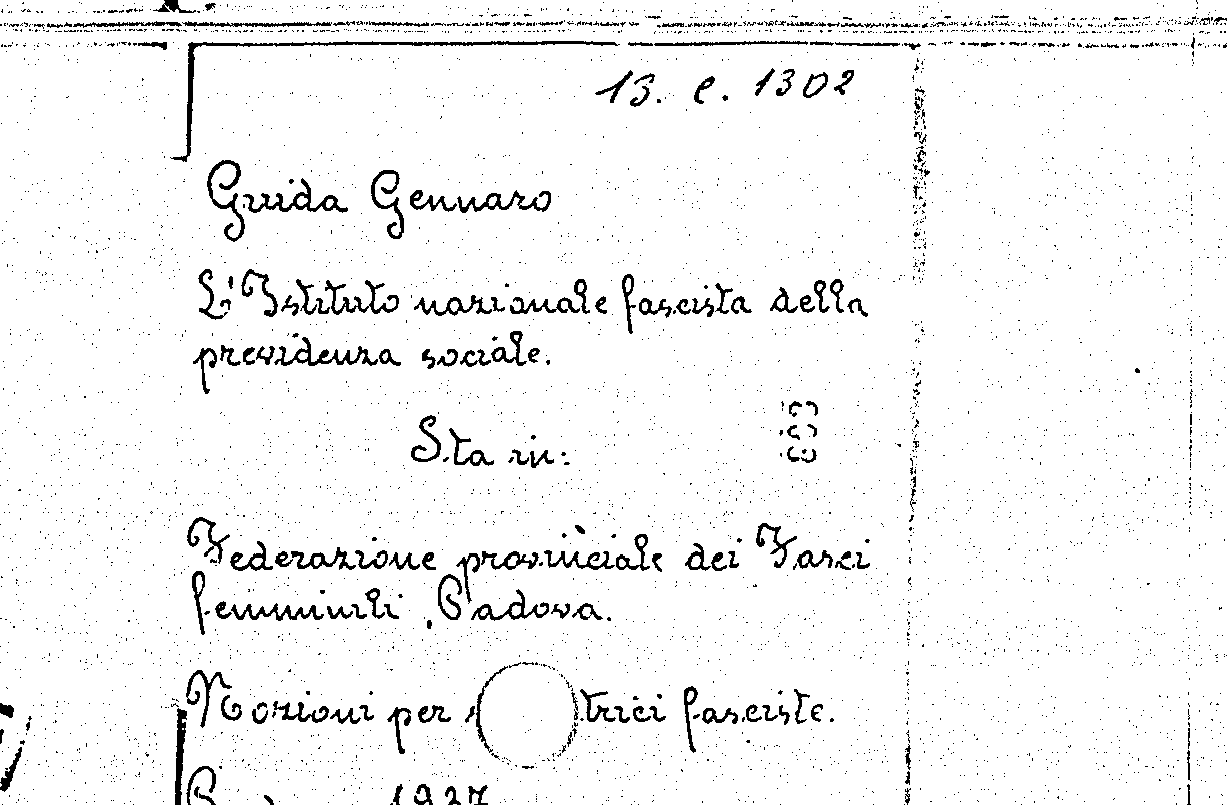 13. e. 1302
Guida Gennaro
L'Istituto nazionale fascista della
previdenza sociale.
Sta in:
Federazione provinciale dei Fasci
femminili, Padova.
Nozioni per trici fasciste.
1937